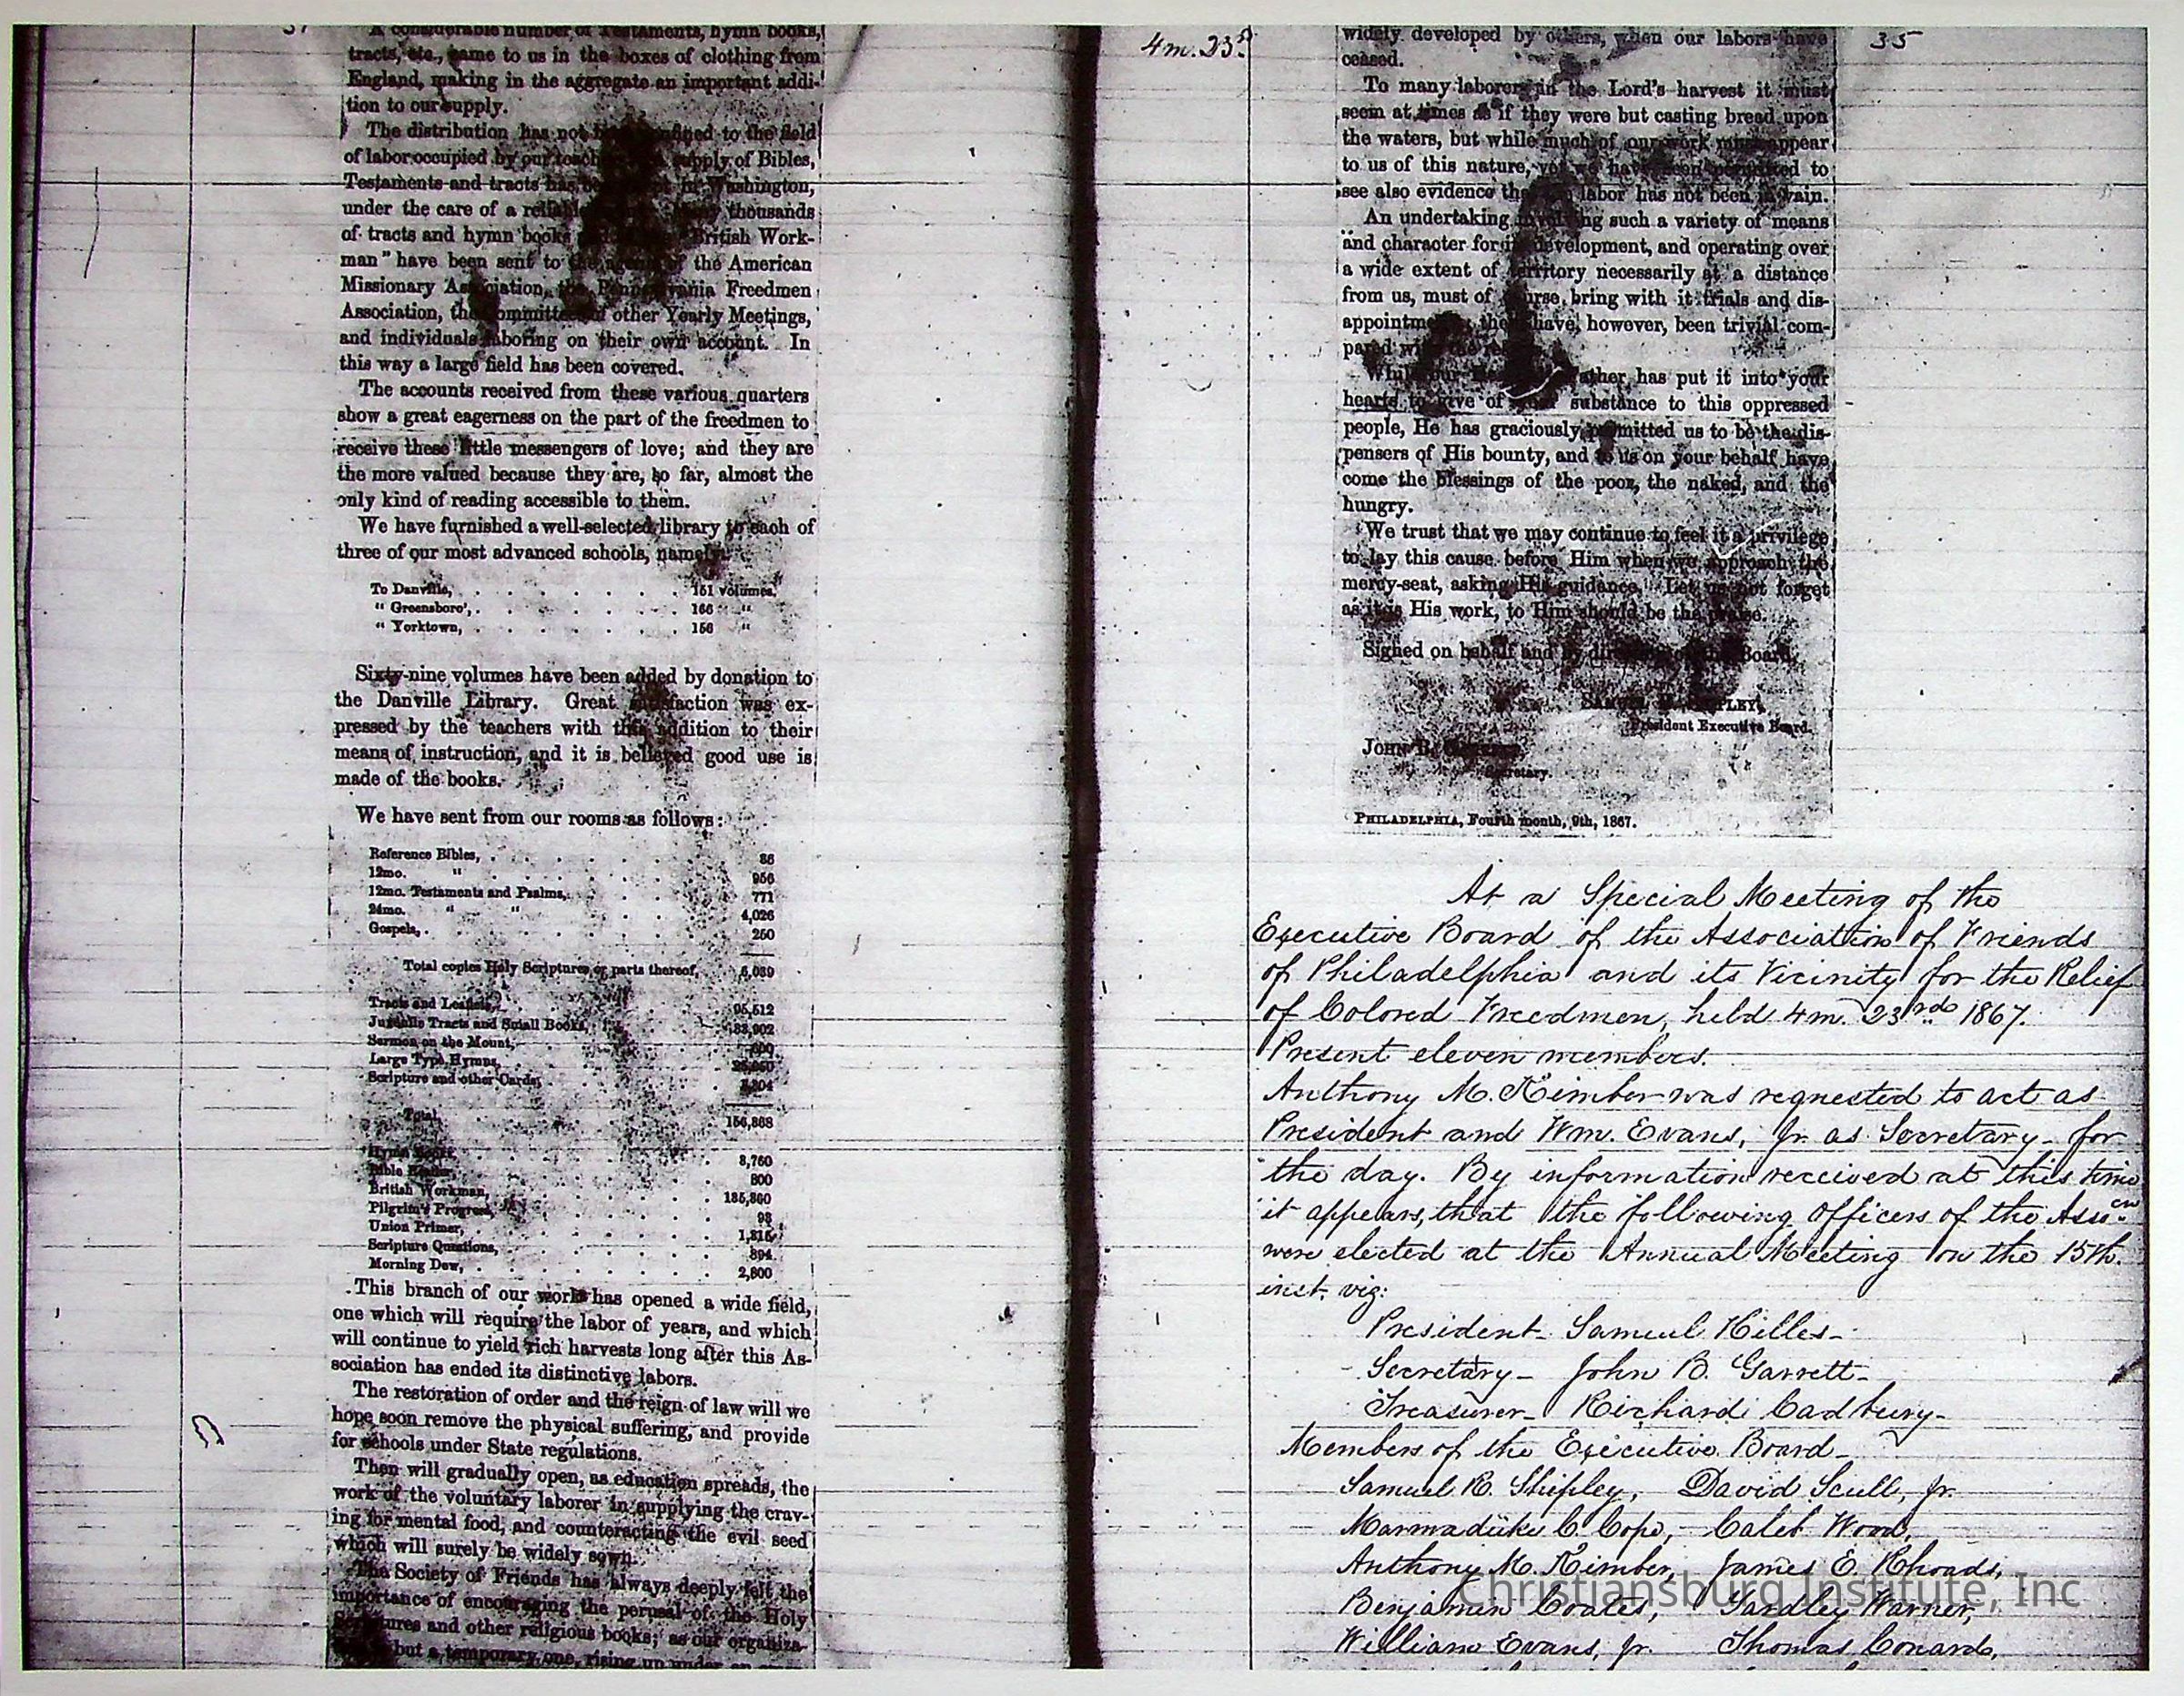 A considerable number of Testaments, hymn books,
tracts, etc., came to us in the boxes of clothing from
England, making in the aggregate an important addi-
tion to our supply.
The distribution has not been confined to the field
of labor occupied by our supply of Bibles,
Testaments and tracts has Washington,
under the care of a reliable thousands
of tracts and hymn books British Work-
man" have been sent to the agents of the American
Missionary Association, the Pennsylvania Freedmen
Association, the committees of other Yearly Meetings,
and individuals laboring on their own account. In
this way a large field has been covered.
The accounts received from these various quarters
show a great eagerness on the part of the freedmen to
receive these little messengers of love; and they are
the more valued because they are, so far, almost the
only kind of reading accessible to them.
We have furnished a well-selected library to each of
three of our most advanced schools, namely:
To Danville, 151 volumes.
" Greensboro', 166 "
" Yorktown, 156 "
Sixty-nine volumes have been added by donation to
the Danville Library. Great satisfaction was ex-
pressed by the teachers with this addition to their
means of instruction, and it is believed good use is
made of the books.
We have sent from our rooms as follows:
Reference Bibles, 86
12mo. " 956
12mo. Testaments and Psalms, 771
24mo. " " 4,026
Gospels, 250
Total copies Holy Scriptures or parts thereof,
Tracts and Leaflets, 95,512
Juvenile Tracts and Small Books,
Sermon on the Mount,
Large Type Hymns,
Scripture and other Cards,
Total,
Hymn Books, 3,760
Bible 800
British Workman, 185,860
Pilgrim's Progress, 98
Union Primer,
Scripture Questions, 894
Morning Dew, 2,800
This branch of our work has opened a wide field,
one which will require the labor of years, and which
will continue to yield rich harvests long after this As-
sociation has ended its distinctive labors.
The restoration of order and the reign of law will we
hope soon remove the physical suffering, and provide
for schools under State regulations.
Then will gradually open, as education spreads, the
work of the voluntary laborer in supplying the crav-
ing for mental food, and counteracting the evil seed
which will surely be widely sown.
The Society of Friends has always deeply felt the
importance of encouraging the perusal of the Holy
Scriptures and other religious books; as our organiza-
but a temporary one, rising up under an
4m. 23d.
35
widely developed by others, when our labors have
ceased.
To many laborers in the Lord's harvest it must
seem at times as if they were but casting bread upon
the waters, but while much of our work must appear
to us of this nature, yet we have been permitted to
see also evidence that labor has not been in vain.
An undertaking involving such a variety of means
and character for its development, and operating over
a wide extent of territory necessarily at a distance
from us, must of course bring with it trials and dis-
appointments; they have, however, been trivial com-
pared with the
While our Father has put it into your
hearts to give of your substance to this oppressed
people, He has graciously permitted us to be the dis-
pensers of His bounty, and to us on your behalf have
come the blessings of the poor, the naked, and the
hungry.
We trust that we may continue to feel it a privilege
to lay this cause before Him when we approach the
mercy-seat, asking His guidance. Let us not forget
as it is His work, to Him should be the praise.
Signed on behalf and by direction of the Board,
Samuel R. Shipley,
President Executive Board.
John B. Garrett,
Secretary.
Philadelphia, Fourth month, 9th, 1867.
At a Special Meeting of the
Executive Board of the Association of Friends
of Philadelphia and its Vicinity for the Relief
of Colored Freedmen, held 4m. 23rd 1867.
Present eleven members.
Anthony M. Kimber was requested to act as
President and Wm. Evans, Jr. as Secretary for
the day. By information received at this time
it appears, that the following Officers of the Asso:cn
were elected at the Annual Meeting on the 15th.
inst. viz:
President- Samuel Hilles-
Secretary- John B. Garrett-
Treasurer- Richard Cadbury-
Members of the Executive Board-
Samuel R. Shipley, David Scull, Jr.
Marmaduke C. Cope, Caleb Wood,
Anthony M. Kimber, James E. Rhoads,
Benjamin Coates, Yardley Warner,
William Evans, Jr. Thomas Conard,
Christiansburg Institute, Inc